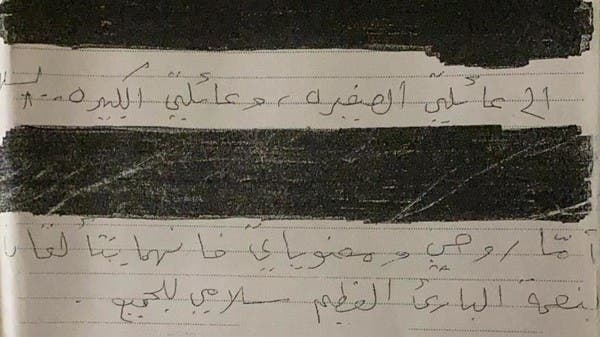 الى عائلتي الصغيره ، وعائلتي الكبيره ..
أمّا روحي ومعنوياتي فانهما يتألقان
بنعمة البارئ العظيم سلامي للجميع .